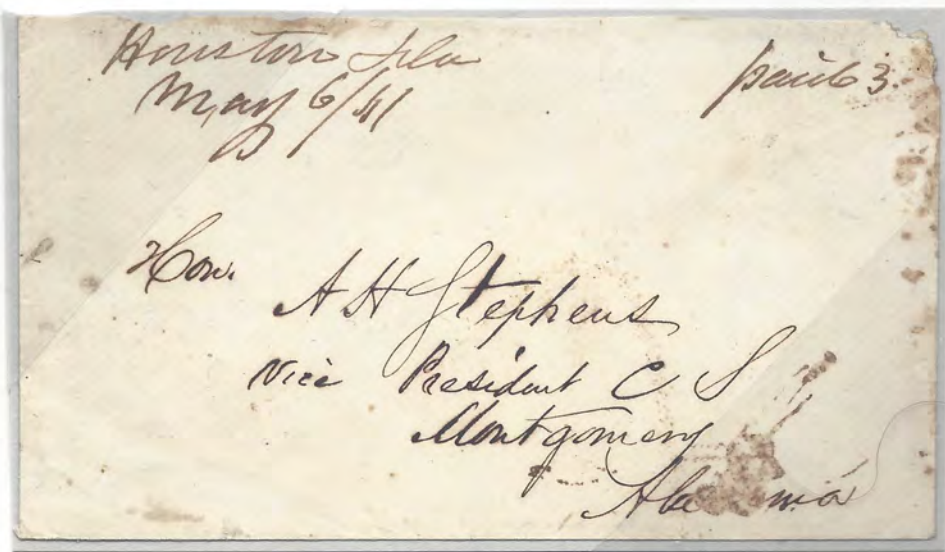 Houston Fla
May 6/61
paid 3.
Hon.
A H Stephens
Vice President C S
Montgomery
Alabama